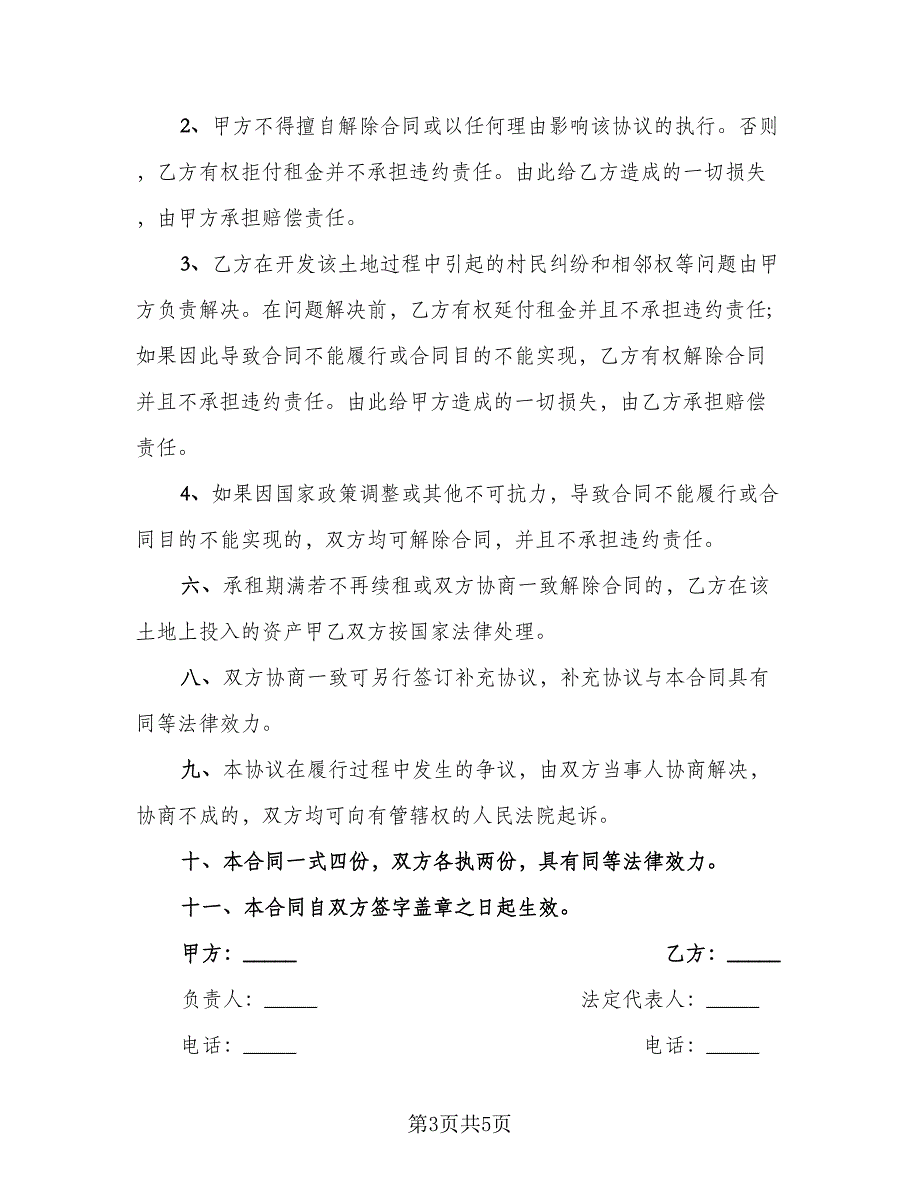 2、甲方不得擅自解除合同或以任何理由影响该协议的执行。否则
，乙方有权拒付租金并不承担违约责任。由此给乙方造成的一切损失
，由甲方承担赔偿责任。
3、乙方在开发该土地过程中引起的村民纠纷和相邻权等问题由甲
方负责解决。在问题解决前，乙方有权延付租金并且不承担违约责任;
如果因此导致合同不能履行或合同目的不能实现，乙方有权解除合同
并且不承担违约责任。由此给甲方造成的一切损失，由乙方承担赔偿
责任。
4、如果因国家政策调整或其他不可抗力，导致合同不能履行或合
同目的不能实现的，双方均可解除合同，并且不承担违约责任。
六、承租期满若不再续租或双方协商一致解除合同的，乙方在该
土地上投入的资产甲乙双方按国家法律处理。
八、双方协商一致可另行签订补充协议，补充协议与本合同具有
同等法律效力。
九、本协议在履行过程中发生的争议，由双方当事人协商解决，
协商不成的，双方均可向有管辖权的人民法院起诉。
十、本合同一式四份，双方各执两份，具有同等法律效力。
十一、本合同自双方签字盖章之日起生效。
甲方：_____ 乙方：_____
负责人：_____ 法定代表人：_____
电话：_____ 电话：_____
第3页共5页